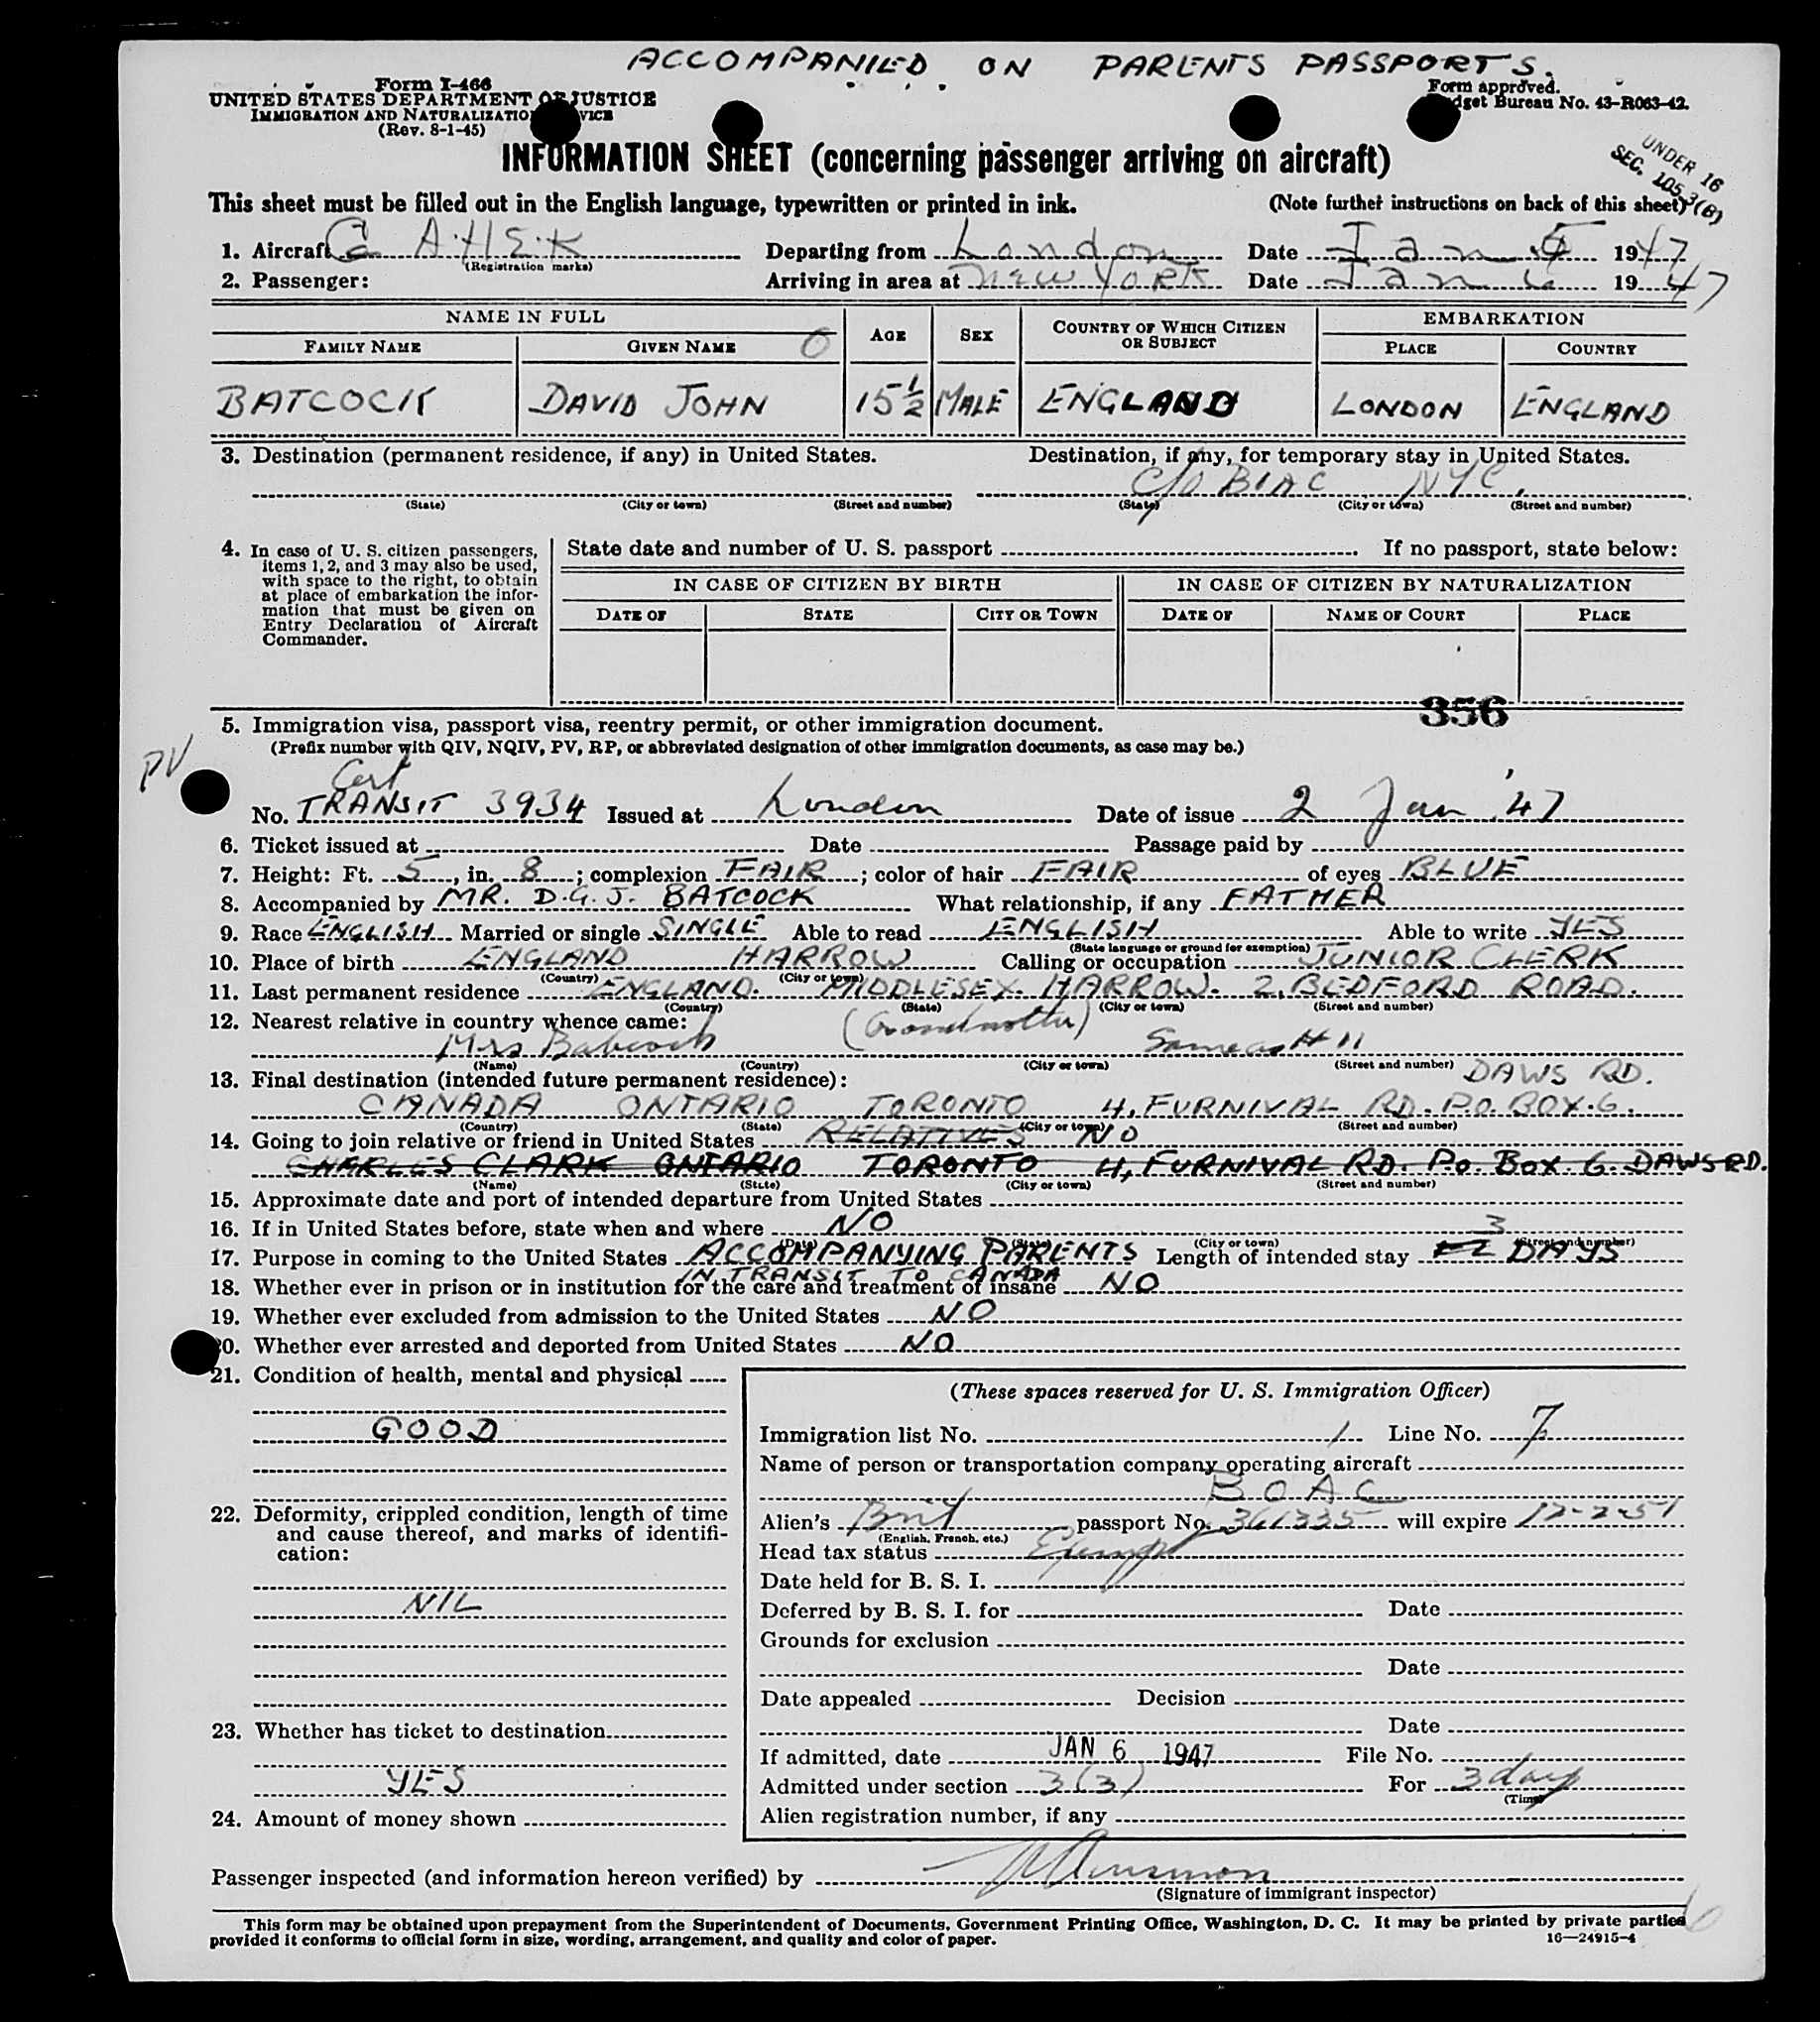 ACCOMPANIED ON PARENTS PASSPORTS.
Form I-466
UNITED STATES DEPARTMENT OF JUSTICE
IMMIGRATION AND NATURALIZATION SERVICE
(Rev. 8-1-45)
Form approved.
Budget Bureau No. 43-R063-42.
UNDER 16
SEC. 105.3(B)
INFORMATION SHEET (concerning passenger arriving on aircraft)
This sheet must be filled out in the English language, typewritten or printed in ink. (Note further instructions on back of this sheet)
1. Aircraft G AHEK Departing from London Date Jan 5 1947
(Registration marks)
2. Passenger: Arriving in area at New York Date Jan 6 1947
NAME IN FULL AGE SEX COUNTRY OF WHICH CITIZEN OR SUBJECT EMBARKATION
FAMILY NAME GIVEN NAME O PLACE COUNTRY
BATCOCK DAVID JOHN 15½ MALE ENGLAND LONDON ENGLAND
3. Destination (permanent residence, if any) in United States. Destination, if any, for temporary stay in United States.
C/O BIAC NYC,
(State) (City or town) (Street and number) (State) (City or town) (Street and number)
4. In case of U. S. citizen passengers, items 1, 2, and 3 may also be used, with space to the right, to obtain at place of embarkation the information that must be given on Entry Declaration of Aircraft Commander.
State date and number of U. S. passport If no passport, state below:
IN CASE OF CITIZEN BY BIRTH IN CASE OF CITIZEN BY NATURALIZATION
DATE OF STATE CITY OR TOWN DATE OF NAME OF COURT PLACE
356
5. Immigration visa, passport visa, reentry permit, or other immigration document.
(Prefix number with QIV, NQIV, PV, RP, or abbreviated designation of other immigration documents, as case may be.)
PV
Cert
No. TRANSIT 3934 Issued at London Date of issue 2 Jan '47
6. Ticket issued at Date Passage paid by
7. Height: Ft. 5, in. 8; complexion FAIR; color of hair FAIR of eyes BLUE
8. Accompanied by MR. D.G.J. BATCOCK What relationship, if any FATHER
9. Race ENGLISH Married or single SINGLE Able to read ENGLISH Able to write YES
(State language or ground for exemption)
10. Place of birth ENGLAND HARROW Calling or occupation JUNIOR CLERK
(Country) (City or town)
11. Last permanent residence ENGLAND. MIDDLESEX. HARROW. 2, BEDFORD ROAD.
(Country) (State) (City or town) (Street and number)
12. Nearest relative in country whence came: (Grandmother)
Mrs Babcock Same as # 11
(Name) (Country) (City or town) (Street and number)
13. Final destination (intended future permanent residence): DAWS RD.
CANADA ONTARIO TORONTO 4, FURNIVAL RD. P.O. BOX. 6.
(Country) (State) (City or town) (Street and number)
14. Going to join relative or friend in United States RELATIVES NO
CHARLES CLARK ONTARIO TORONTO 4, FURNIVAL RD. P.O. BOX. 6. DAWS RD.
(Name) (State) (City or town) (Street and number)
15. Approximate date and port of intended departure from United States
16. If in United States before, state when and where NO
(Date) (State) (City or town) (Street and number)
17. Purpose in coming to the United States ACCOMPANYING PARENTS Length of intended stay 3 DAYS
IN TRANSIT TO CANADA
18. Whether ever in prison or in institution for the care and treatment of insane NO
19. Whether ever excluded from admission to the United States NO
20. Whether ever arrested and deported from United States NO
21. Condition of health, mental and physical
GOOD
22. Deformity, crippled condition, length of time and cause thereof, and marks of identification:
NIL
23. Whether has ticket to destination
YES
24. Amount of money shown
(These spaces reserved for U. S. Immigration Officer)
Immigration list No. 1 Line No. 7
Name of person or transportation company operating aircraft
BOAC
Alien's Brit passport No. 361335 will expire 12-2-51
(English, French, etc.)
Head tax status Exempt
Date held for B. S. I.
Deferred by B. S. I. for Date
Grounds for exclusion
Date
Date appealed Decision
Date
If admitted, date JAN 6 1947 File No.
Admitted under section 3(3) For 3 days
(Time)
Alien registration number, if any
Passenger inspected (and information hereon verified) by
(Signature of immigrant inspector)
This form may be obtained upon prepayment from the Superintendent of Documents, Government Printing Office, Washington, D. C. It may be printed by private parties
provided it conforms to official form in size, wording, arrangement, and quality and color of paper.
16—24915-4
6